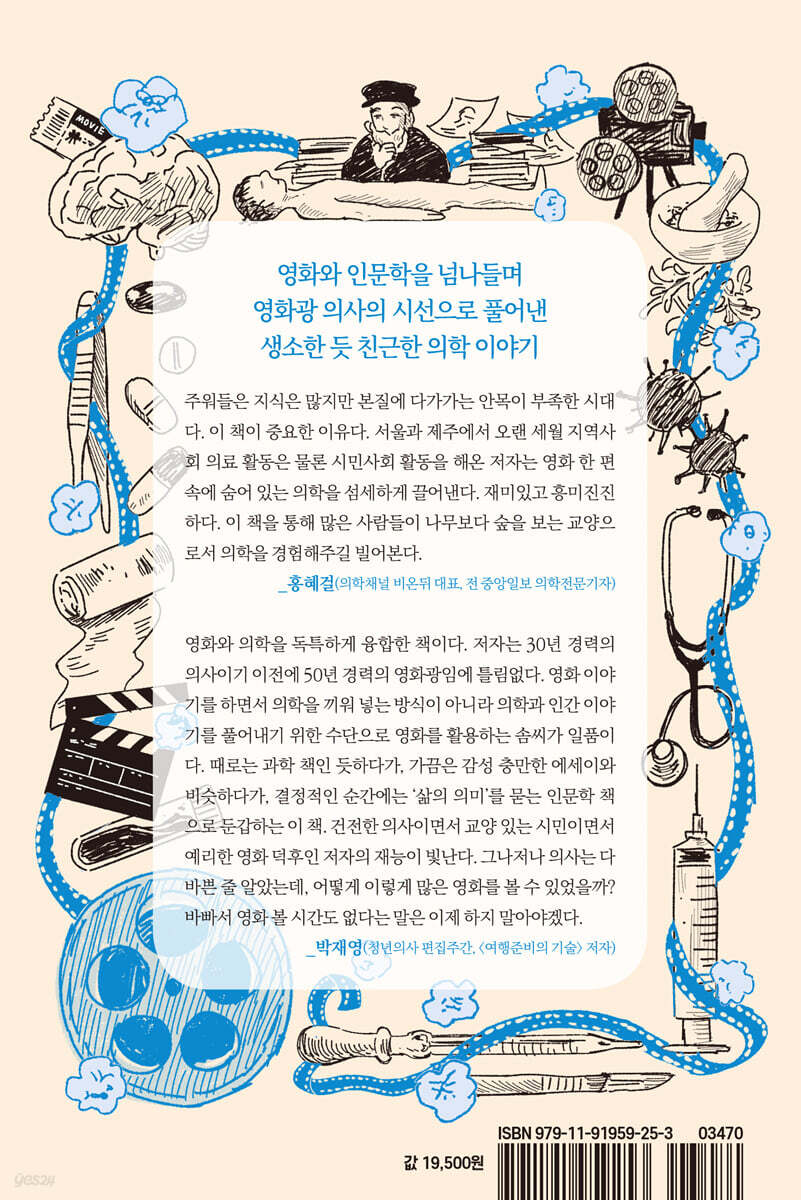 MOVIE
영화와 인문학을 넘나들며
영화광 의사의 시선으로 풀어낸
생소한 듯 친근한 의학 이야기
주워들은 지식은 많지만 본질에 다가가는 안목이 부족한 시대
다. 이 책이 중요한 이유다. 서울과 제주에서 오랜 세월 지역사
회 의료 활동은 물론 시민사회 활동을 해온 저자는 영화 한 편
속에 숨어 있는 의학을 섬세하게 끌어낸다. 재미있고 흥미진진
하다. 이 책을 통해 많은 사람들이 나무보다 숲을 보는 교양으
로서 의학을 경험해주길 빌어본다.
_홍혜걸(의학채널 비온뒤 대표, 전 중앙일보 의학전문기자)
영화와 의학을 독특하게 융합한 책이다. 저자는 30년 경력의
의사이기 이전에 50년 경력의 영화광임에 틀림없다. 영화 이야
기를 하면서 의학을 끼워 넣는 방식이 아니라 의학과 인간 이야
기를 풀어내기 위한 수단으로 영화를 활용하는 솜씨가 일품이
다. 때로는 과학 책인 듯하다가, 가끔은 감성 충만한 에세이와
비슷하다가, 결정적인 순간에는 ‘삶의 의미’를 묻는 인문학 책
으로 둔갑하는 이 책. 건전한 의사이면서 교양 있는 시민이면서
예리한 영화 덕후인 저자의 재능이 빛난다. 그나저나 의사는 다
바쁜 줄 알았는데, 어떻게 이렇게 많은 영화를 볼 수 있었을까?
바빠서 영화 볼 시간도 없다는 말은 이제 하지 말아야겠다.
_박재영(청년의사 편집주간, 〈여행준비의 기술〉 저자)
ISBN 979-11-91959-25-3 03470
값 19,500원
yes24